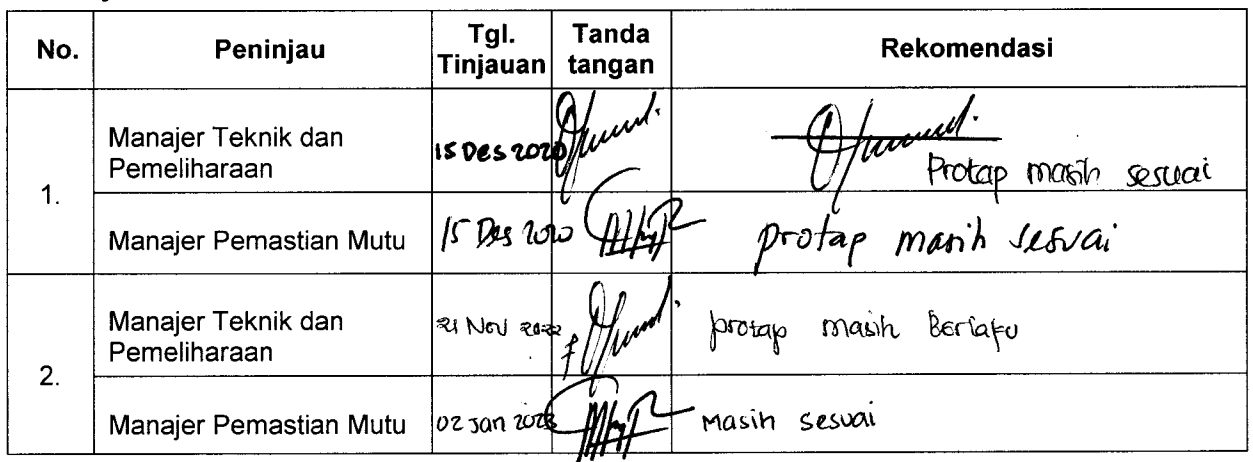 No. Peninjau Tgl. Tinjauan Tanda tangan Rekomendasi
1.
Manajer Teknik dan Pemeliharaan 15 Des 2020 Protap masih sesuai
Manajer Pemastian Mutu 15 Des 2020 protap masih sesuai
2.
Manajer Teknik dan Pemeliharaan 21 Nov 2022 protap masih Berlaku
Manajer Pemastian Mutu 02 Jan 2023 Masih sesuai